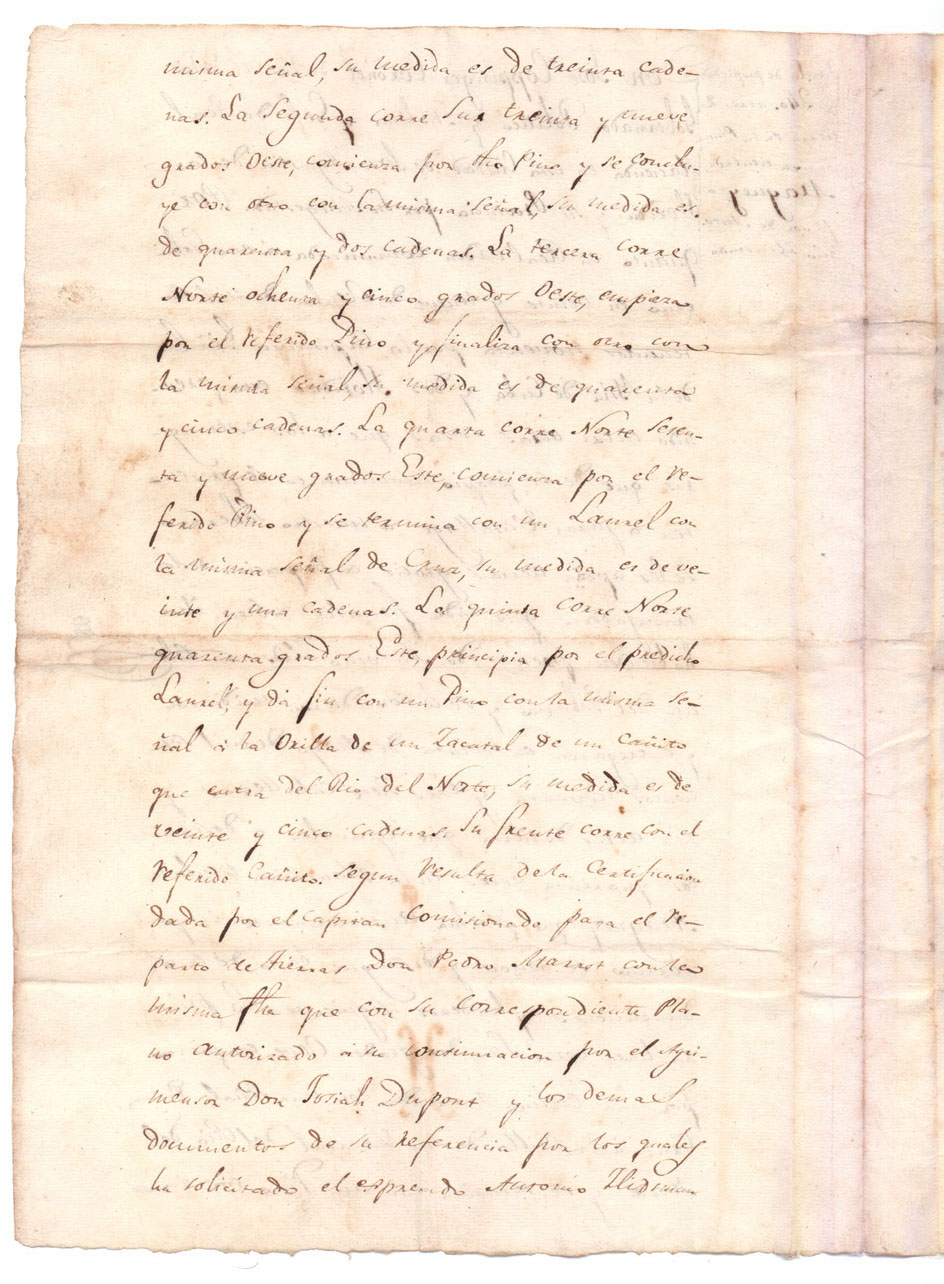 misma señal, su medida es de treinta cade-
nas. La Segunda corre Sur treinta y nueve
grados Oeste, comienza por dho Pino y se conclu-
ye con otro con la misma señal, su medida es
de quarenta y dos cadenas. La tercera corre
Norte ochenta y cinco grados Oeste, empieza
por el referido Pino y finaliza con otro con
la misma señal, su medida es de quarenta
y cinco cadenas. La quarta corre Norte sesen-
ta y nueve grados Este, comienza por el re-
ferido Pino y se termina con un Laurel con
la misma señal de Cruz, su medida es de ve-
inte y una cadenas. La quinta corre Norte
quarenta grados Este, principia por el predicho
Laurel, y dá fin con un Pino con la misma se-
ñal á la Orilla de un Zacatal de un Cañito
que entra del Rio del Norte, su medida es de
veinte y cinco cadenas. Su frente corre con el
referido Cañito. Segun resulta de la Certificacion
dada por el Capitan Comisionado para el re-
parto de tierras Don Pedro Marrot con la
misma fha que con su correspondiente Pla-
no autorizado á su continuacion por el Agri-
mensor Don Josiah Dupont y los demas
documentos de su referencia por los quales
ha solicitado el espresado Antonio